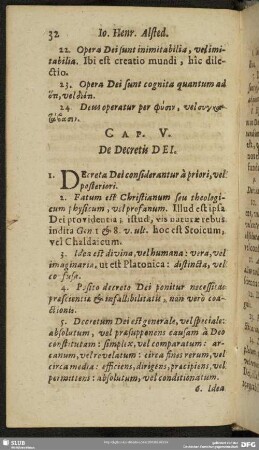 32 Io. Henr. Alsted.
22. Opera Dei sunt inimitabilia, vel imi-
tabilia. Ibi est creatio mundi, hîc dile-
ctio.
23. Opera Dei sunt cognita quantum ad
ὅν, vel διόν.
24. Deus operatur per φύσιν, vel συγχα-
CAP. V.
De Decretis DEI.
1. DEcreta Dei considerantur à priori, vel
posteriori.
2. Fatum est Christianum seu theologi-
cum physicum, vel profanum. Illud est ipsa
Dei providentia; istud, vis naturæ rebus
indita Gen 1 & 8. v. ult. hoc est Stoicum,
vel Chaldaicum.
3. Idea est divina, vel humana: vera, vel
imaginaria, ut est Platonica: distincta, vel
cofusa.
4. Posito decreto Dei ponitur necessitas
præscientiæ & infallibilitatis, non verò coa-
ctionis.
5. Decretum Dei est generale, vel speciale:
absolutum, vel præsupponens causam à Deo
constitutam: simplex, vel comparatum: ar-
canum, vel revelatum: circa fines rerum, vel
circa media: efficiens, dirigens, præcipiens, vel
permittens: absolutum, vel conditionatum.
6. Idea
SLUB
DFG